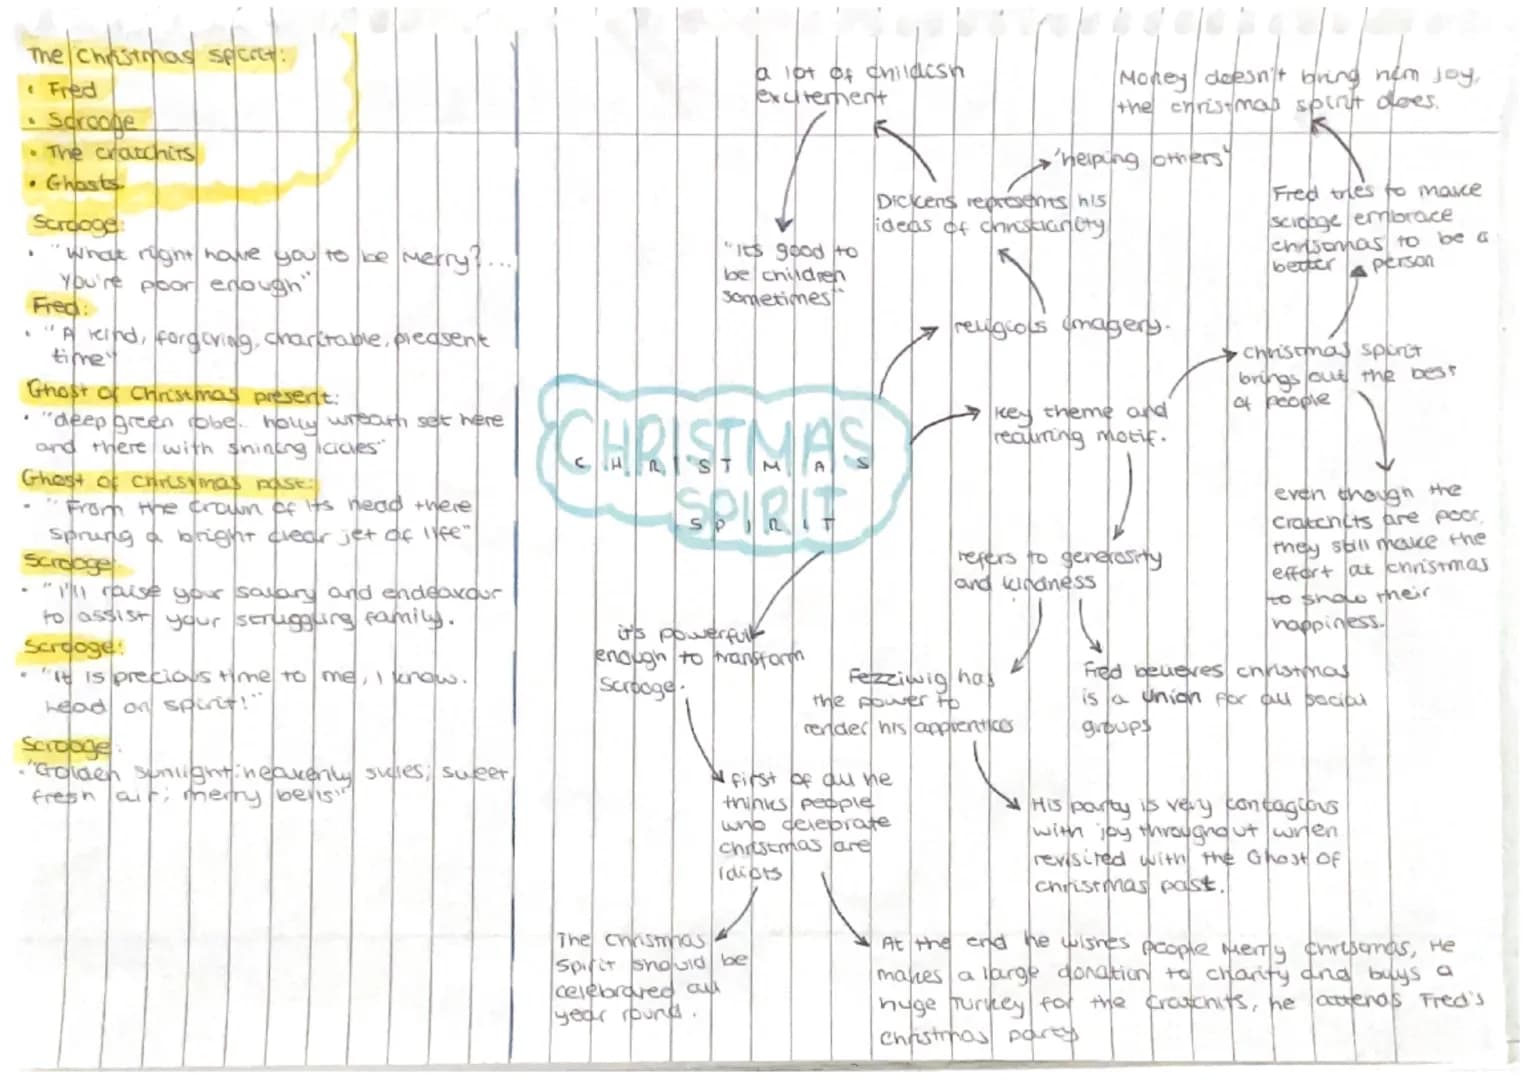 The Christmas spirit:
• Fred
• Scrooge
• The cratchits
• Ghosts
Scrooge:
• "What right have you to be merry?...
You're poor enough"
Fred:
• "A kind, forgiving, charitable, pleasent
time"
Ghost of Christmas present:
• "deep green robe.. holly wreath set here
and there with shining icicles"
Ghost of Christmas past:
- "From the crown of its head there
sprung a bright clear jet of life"
Scrooge:
• "I'll raise your salary and endeavour
to assist your struggling family.
Scrooge:
• "It is precious time to me, I know.
Lead on spirit!"
Scrooge:
• "Golden sunlight; heavenly skies; sweet
fresh air; merry bells"
a lot of childish
excitement
"Its good to
be children
sometimes"
Dickens represents his
ideas of christianity
'helping others'
religiols imagery.
Money doesn't bring him joy,
the christmas spirit does.
Fred tries to make
scrooge embrace
chrisomas to be a
better person
christmas spirit
brings out the best
of people
even though the
cratchits are poor,
they still make the
effort at christmas
to show their
happiness.
Key theme and
recurring motif.
CHRISTMAS
CHRISTMAS
SPIRIT
SPIRIT
refers to generosity
and kindness
Fezziwig has
the power to
render his apprentices
Fred believes christmas
is a union for all social
groups
His party is very contagious
with joy throughout when
revisited with the Ghost of
christmas past.
it's powerful
enough to transform
Scrooge.
first of all he
thinks people
who celebrate
christmas are
idiots
The christmas
Spirit should be
celebrated all
year round.
At the end he wishes people merry christomas, He
makes a large donation to charity and buys a
huge Turkey for the Cratchits, he attends Fred's
christmas party